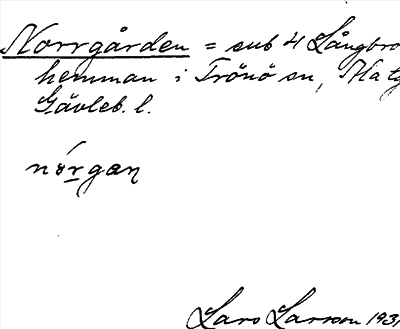 Norrgården = sub 4 Långbro
hemman i Trönö sn,
Gävleb. l.
nórgaɳ
Lars Larsson 1931